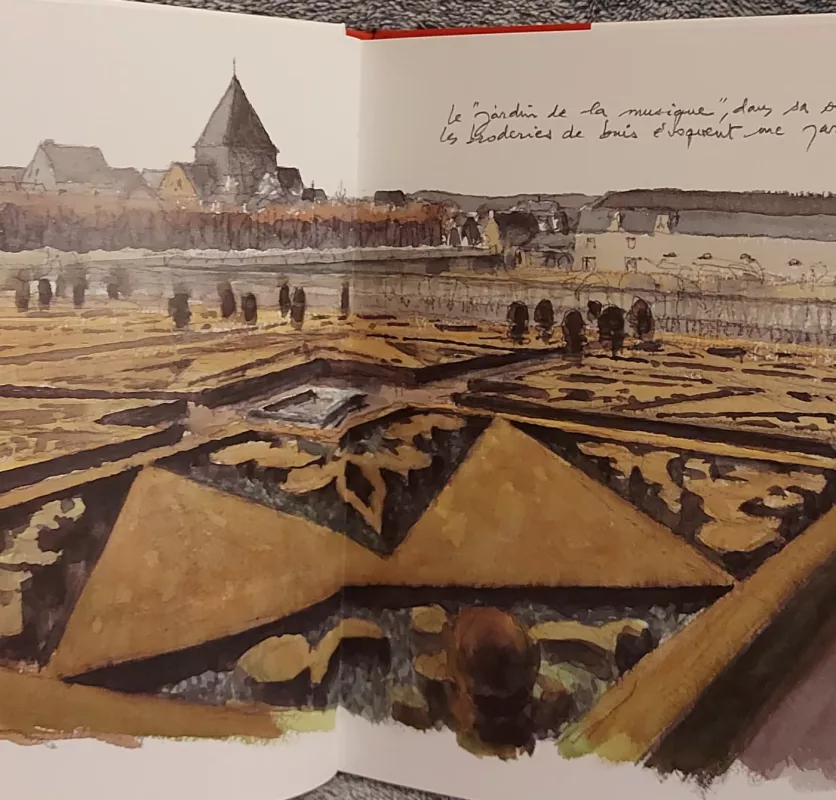 Le "jardin de la musique", dans sa
les broderies de buis évoquent une